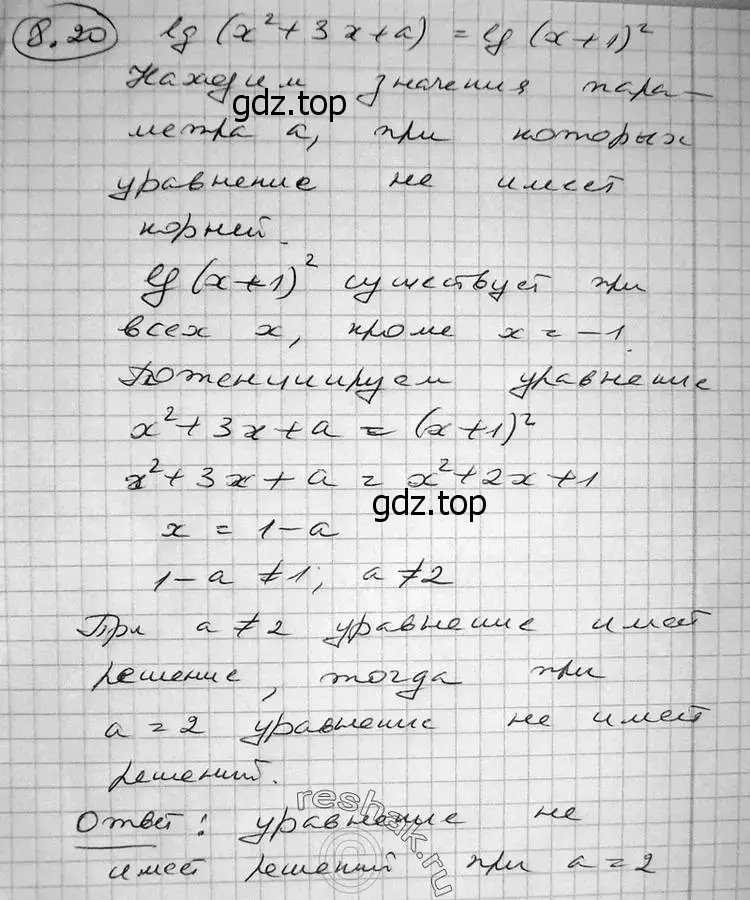 8.20 lg (x² + 3x + a) = lg (x+1)²
Находим значения пара-
gdz.top
метра a, при которых
уравнение не имеет
корней.
lg (x+1)² существует при
всех x, кроме x = -1.
Потенциируем уравнение
x² + 3x + a = (x+1)²
x² + 3x + a = x² + 2x + 1
gdz.top
x = 1 - a
1 - a ≠ 1; a ≠ 2
При a ≠ 2 уравнение имеет
решение, тогда при
a = 2 уравнение не имеет
решений.
reshak.ru
Ответ: уравнение не
имеет решений при a = 2